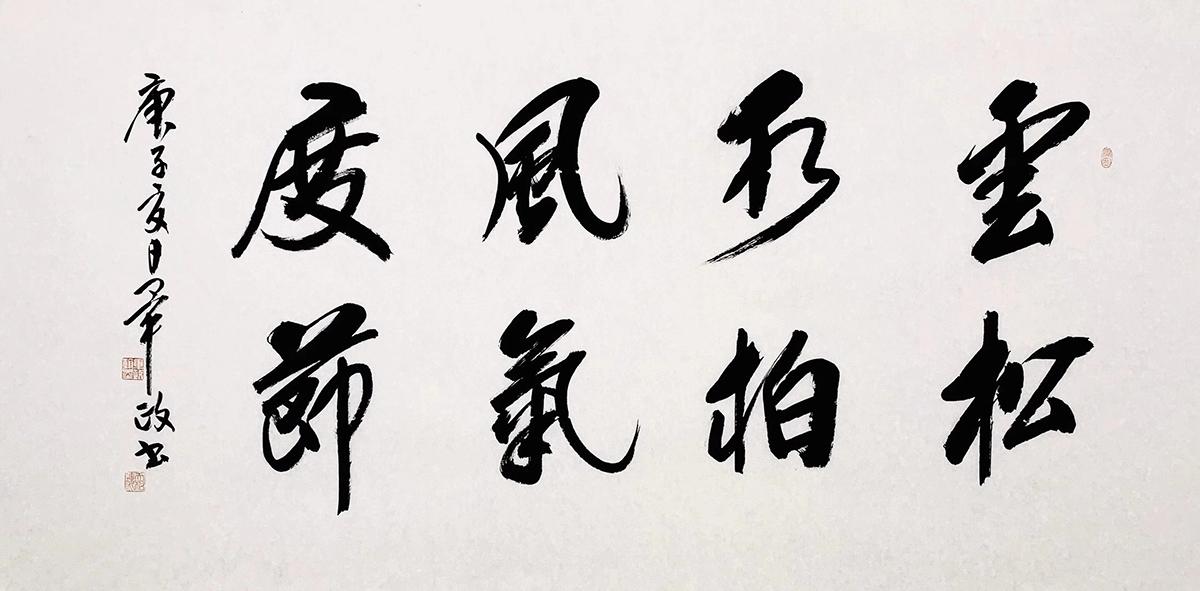 雲水風度
松柏氣節
庚子夏日政书